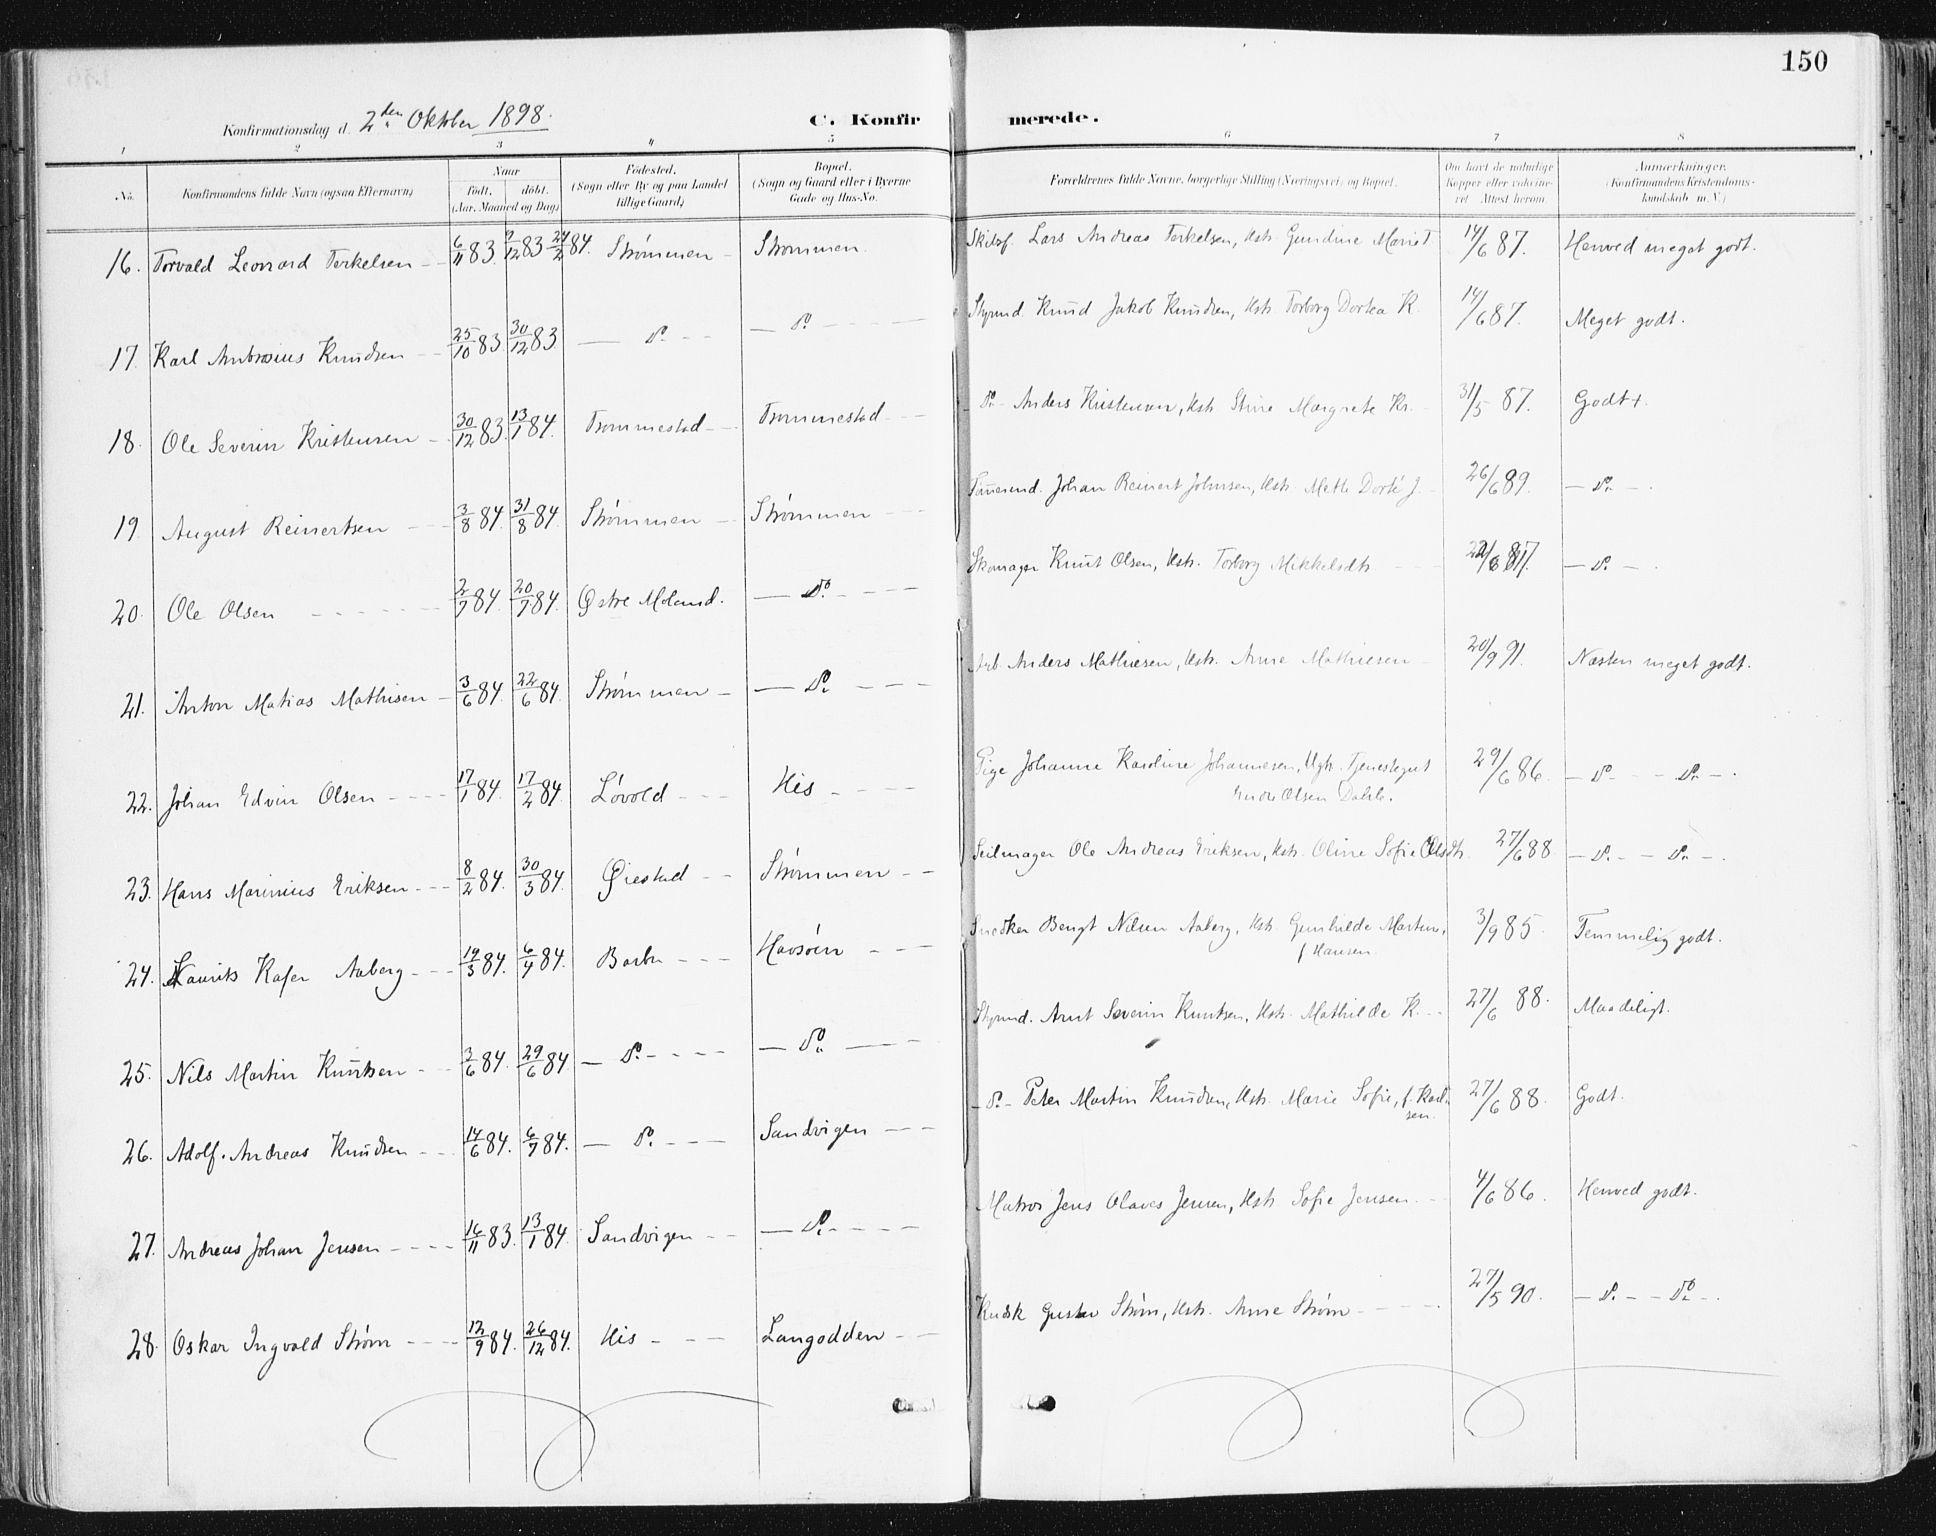 150
Konfirmationsdag d. 2den Oktober 1898.
C. Konfirmerede.
1 2 3 4 5 6 7 8
No. Konfirmandens fulde Navn (ogsaa Efternavn) Naar født, døbt. (Aar, Maaned og Dag) Fødested. (Sogn eller By og paa Landet tillige Gaard) Bopæl. (Sogn og Gaard eller i Byerne Gade og Hus-No. Forældrenes fulde Navne, borgerlige Stilling (Næringsvei) og Bopæl. Om havt de naturlige Kopper eller vaccineret. Attest herom. Anmærkninger. (Konfirmandens Kristendomskundskab m.V.)
16. Torvald Leonard Terkelsen 6/11 83. 9/12 83 24/2 84. Strømmen Strømmen. Lars Andreas Terkelsen, Hstr. Gundine Marie T. 14/6 87. Henved meget godt.
17. Karl Ambrosius Knudsen 25/10 83. 30/12 83. — do — do Styrmd. Knud Jakob Knudsen, Hstr. Torborg Dortea K. 14/6 87. Meget godt.
18. Ole Severin Kristensen 30/12 83. 13/1 84. Trommestad Trommestad do Anders Kristensen, Hstr. Margrete Kr. 31/5 87. Godt+.
19. August Reinertsen 3/8 84. 31/8 84. Strømmen Strømmen Tømmermd. Johan Reinert Johnsen, Hstr. Mette Dorté J. 26/6 89. — do —
20. Ole Olsen 2/7 84. 20/7 84. Østre Moland. — do Skomager Knut Olsen, Hstr. Torborg Mikkelsdtr. — do —
21. Anton Matias Mathisen 3/6 84. 22/6 84. Strømmen — do Arb. Anders Mathiesen, Hstr. Anne Mathiesen 20/9 91. Næsten meget godt.
22. Johan Edvin Olsen 17/1 84. 17/2 84. Løvold His Pige Johanne Karoline Johannesen, Ugh. Tjenestegut
Endre Olsen Dahle. 29/6 86. — do — do —
23. Hans Marinius Eriksen 8/2 84. 30/3 84. Øiestad Strømmen Seilmager Ole Andreas Eriksen, Hstr. Oline Sofie Olsdtr. 27/6 88. — do — do —.
24. Laurits Kafer Aaberg 19/3 84. 6/4 84. Barbu Havsøen Snedker Bengt Nilsen Aaberg, Hstr. Gunhilde Martine,
f. Hansen. 3/9 85. Temmelig godt.
25. Nils Martin Knutsen 2/6 84. 29/6 84. — do — do Styrmd. Arnt Severin Knutsen, Hstr. Mathilde K. 27/6 88. Maadeligt.
26. Adolf Andreas Knudsen 14/6 84. 6/7 84. — do Sandvigen do Peter Martin Knudsen, Hstr. Marie Sofie, f. Karl-
sen. 27/6 88. Godt.
27. Andreas Johan Jensen 16/11 83. 13/1 84. Sandvigen — do Matros Jens Olaves Jensen, Hstr. Sofie Jensen 4/6 86. Henved godt.
28. Oskar Ingvald Strøm 12/9 84. 26/12 84. His Langodden Gustav Strøm, Hstr. Anne Strøm 27/5 90. — do — do —.